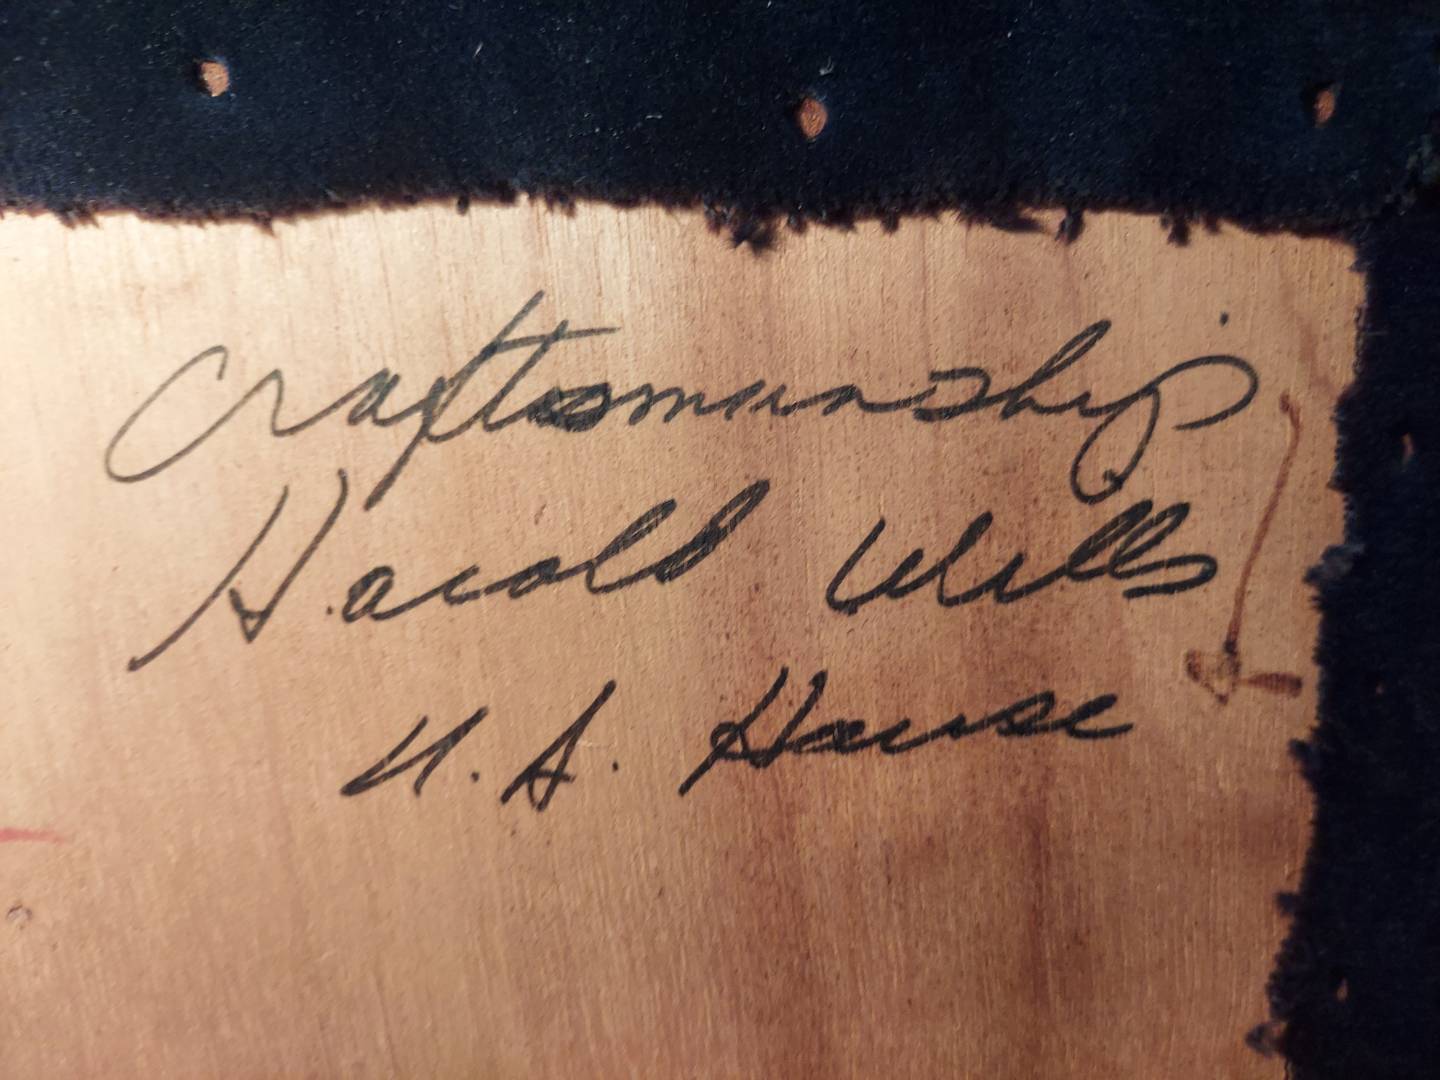 Craftsmanship
Harold Wells
House